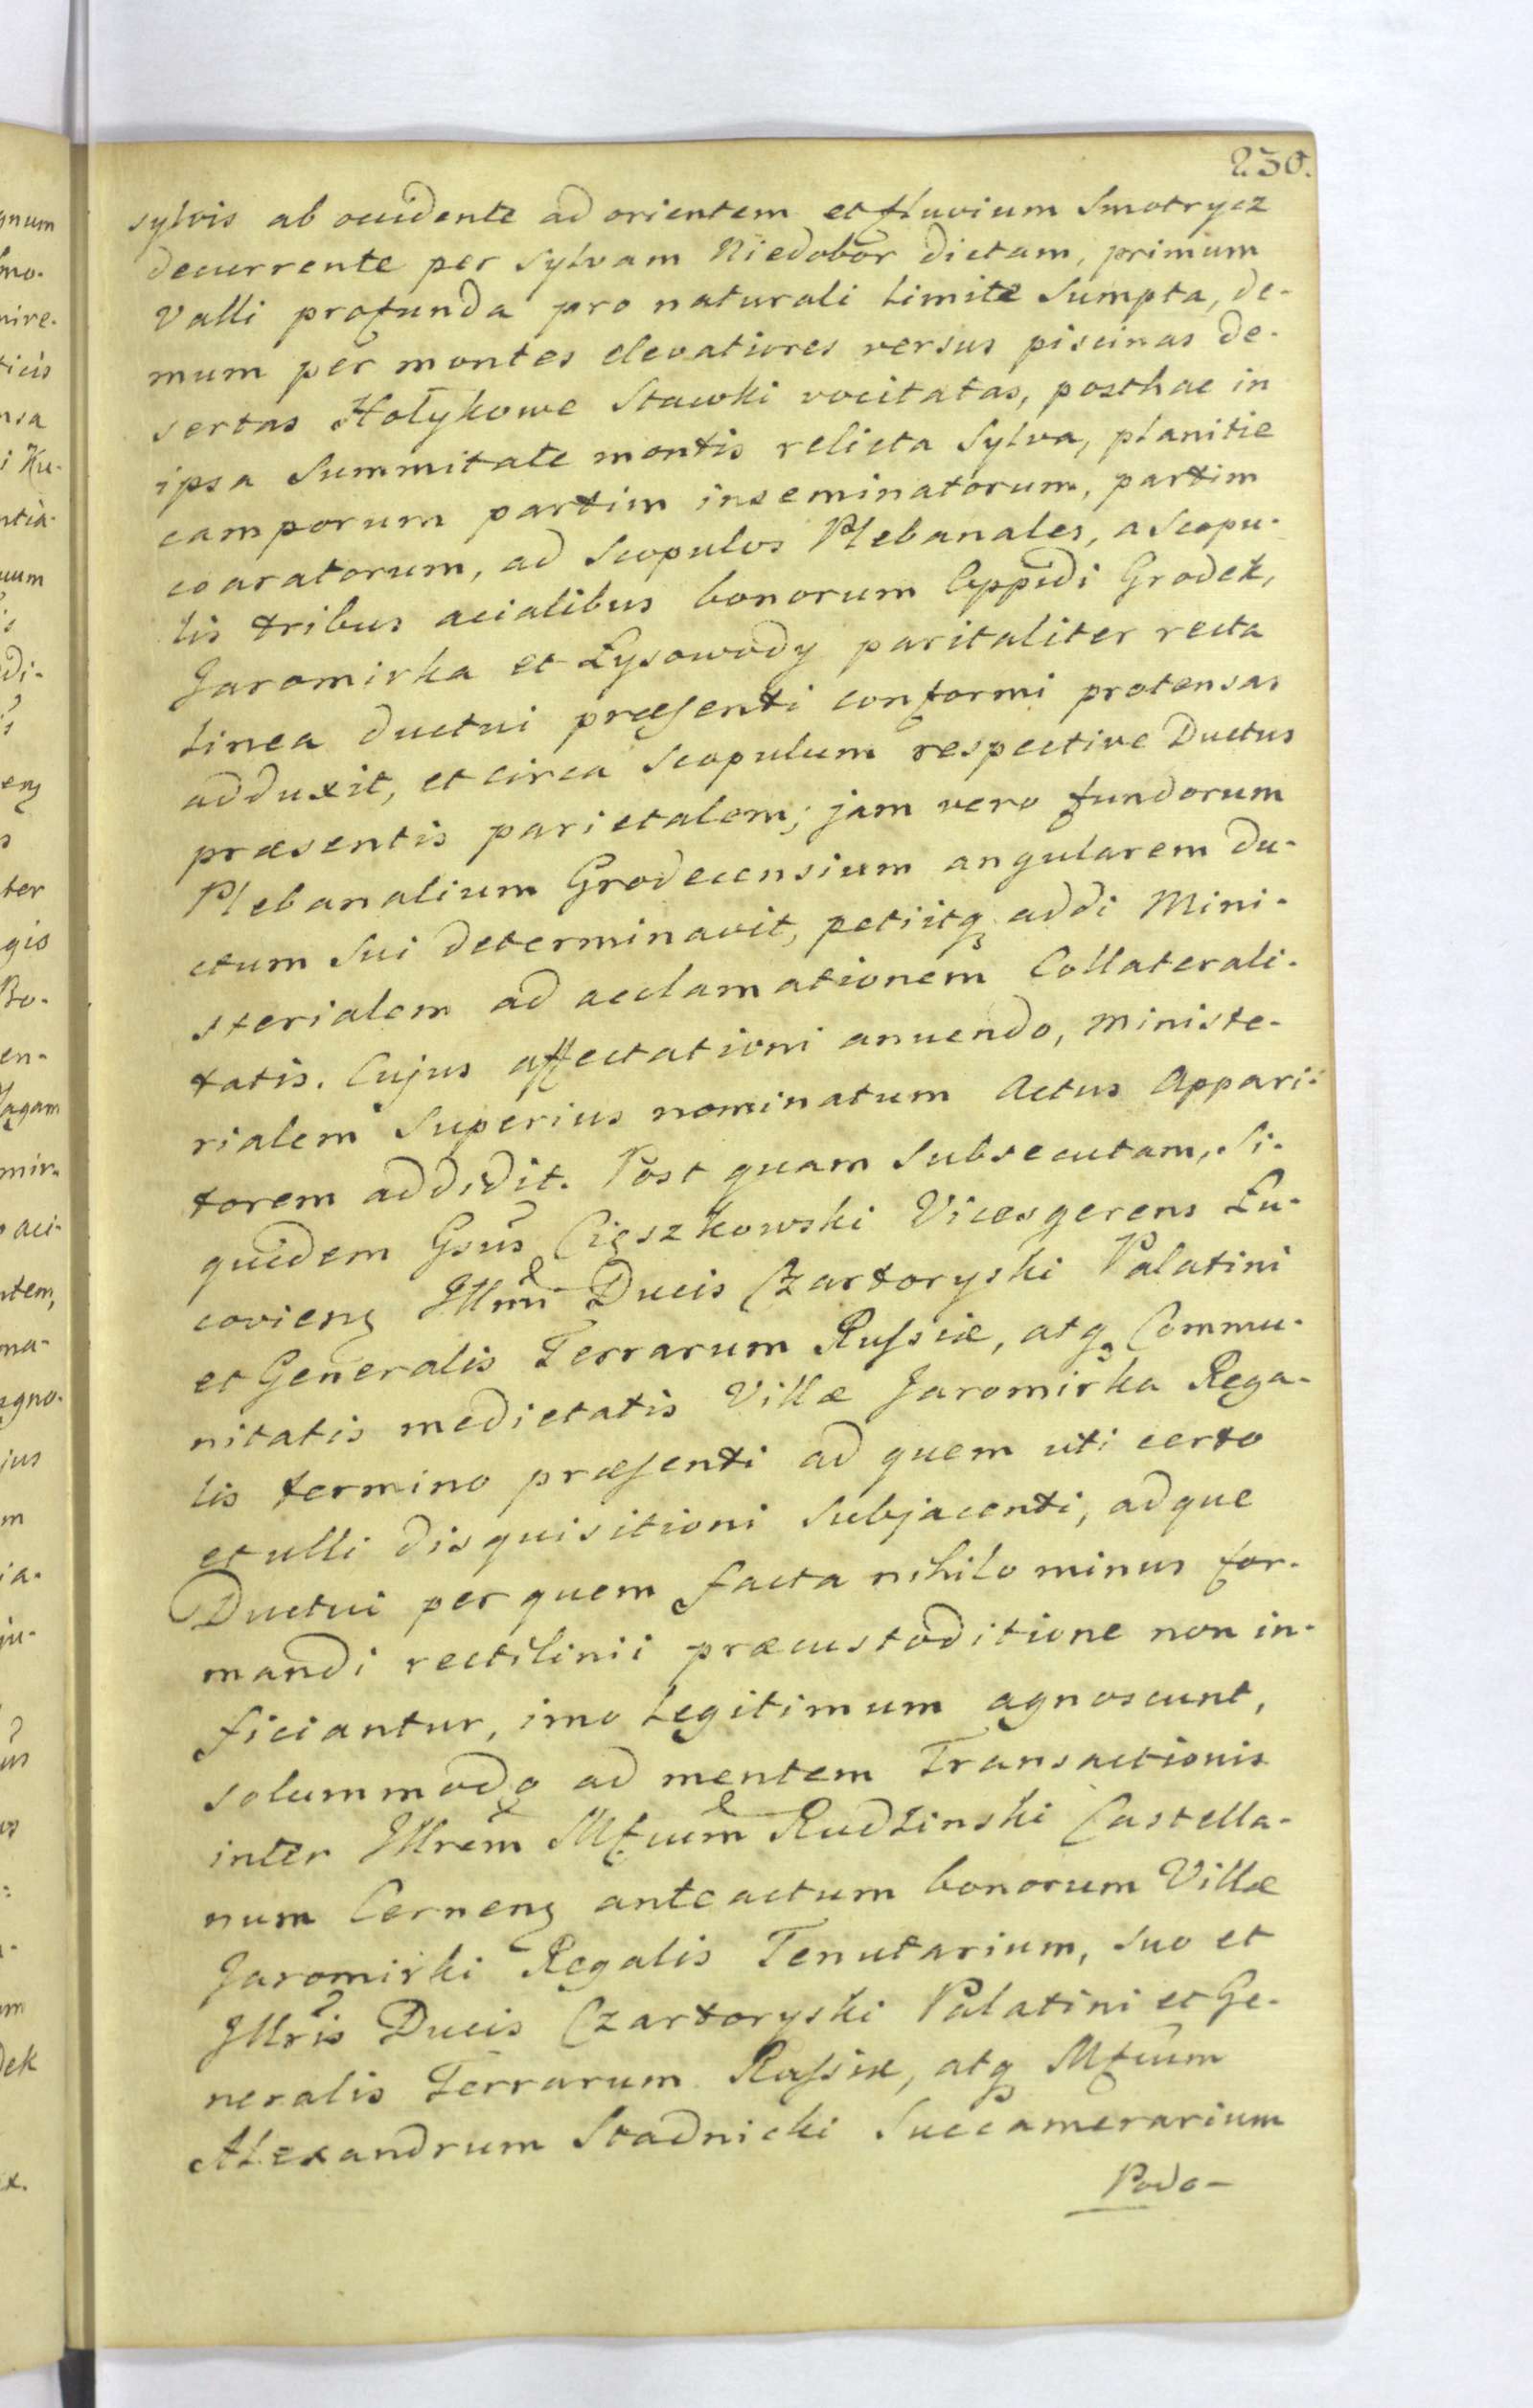 230.
sylvis ab occidente ad orientem et fluvium Smotrycz
decurrente per sylvam Niedobor dictam, primum
Valli profunda pro naturali limite sumpta, de-
mum per montes elevatiores versus piscinas de-
sertas Hołykowe Stawki vocitatas, posthac in
ipsa Summitate montis relicta Sylva, planitie
camporum partim inseminatorum, partim
coaratorum, ad Scopulos Plebanales, a Scopu-
lis tribus acialibus bonorum Oppidi Grodek,
Jaromirka et Łysowody paritaliter recta
linea ductui præsenti conformi protensas
adduxit, et circa Scopulum respective Ductus
præsentis parietalem; jam vero fundorum
Plebanalium Grodecensium angularem du-
ctum Sui determinavit, petiitq addi Mini-
sterialem ad acclamationem Collaterali-
tatis. Cujus affectationi annuendo, Ministe-
rialem Superius nominatum Actus Appari-
torem addidit. Post quam Subsecutam, Si-
quidem Gsus Cięszkowski Vicesgerens Łu-
coviens Illmi Ducis Czartoryski Palatini
et Generalis Terrarum Russiæ, atq Commu-
nitatis medietatis Villæ Jaromirka Rega-
lis termino præsenti ad quem uti certo
et ulli disquisitioni Subjacenti, adque
Ductui per quem facta nihilo minus for-
mandi rectilinii præcustoditione non in-
ficiantur, imo legitimum agnoscunt,
solummodo ad mentem Transactionis
inter Illrem Mfcum Rudzinski Castella-
num Cernens anteactum bonorum Villæ
Jaromirki Regalis Tenutarium, suo et
Illris Ducis Czartoryski Palatini et Ge-
neralis Terrarum Russiæ, atq Mfcum
Alexandrum Stadnicki Succamerarium
Podo-